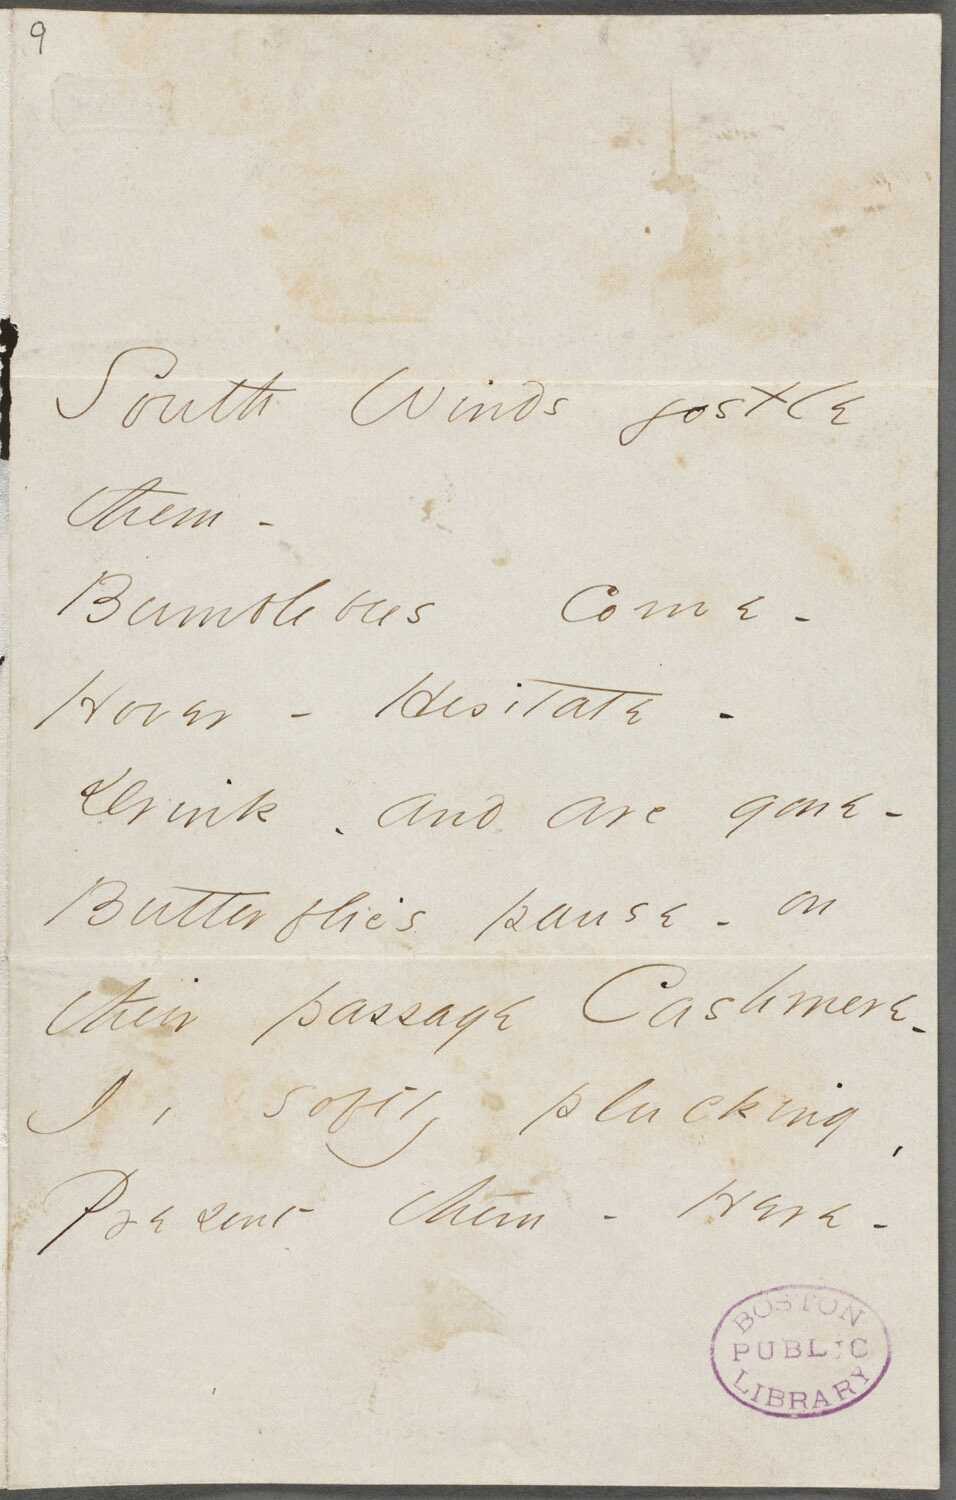 9
South Winds jostle
them -
Bumblebees Come -
Hover - Hesitate -
Drink - and are gone -
Butterflies pause - on
their passage Cashmere -
I, softly plucking,
Present them - Here -
BOSTON
PUBLIC
LIBRARY